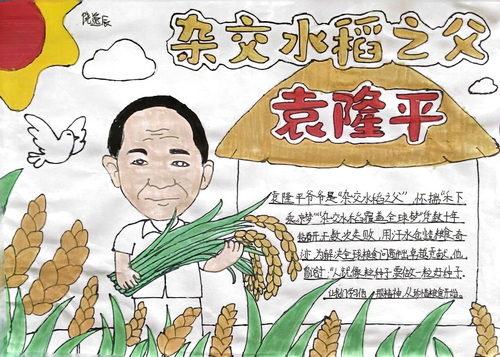 杂交水稻之父
袁隆平
袁隆平爷爷是“杂交水稻之父”,怀揣“禾下
乘凉梦”“杂交水稻覆盖全球梦”,几十年
如
数次失败,用汗水
奇
迹,为解决全球粮食问题作出卓越贡献,他
人就像一粒种子,要做一粒好种子
让我们学习他
精神,从珍惜粮食开始。